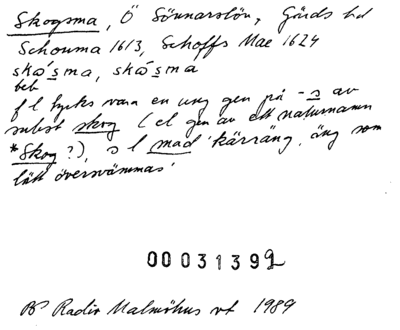 Skogsma, Ö Sönnarslöv, Gärds hd
Schouma 1613, Schoffs Mae 1624
skó̱sma, skó̱sma
beb
f l tycks vara en ung gen på -s av
subst skog (el gen av ett naturnamn
*Skog?), s l mad 'kärräng, äng som
lätt översvämmas'
00031399
BP Radio Malmöhus vt 1989